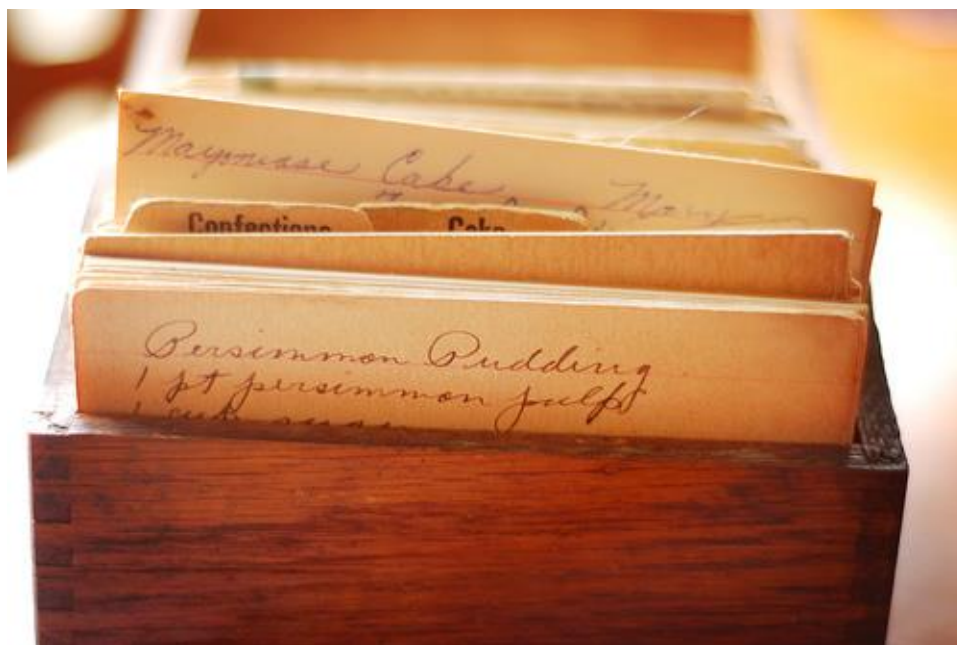 Mayonnase Cake Mary
Confections
Cake
Persimmon Pudding
1 pt persimmon pulp
1 cup sugar